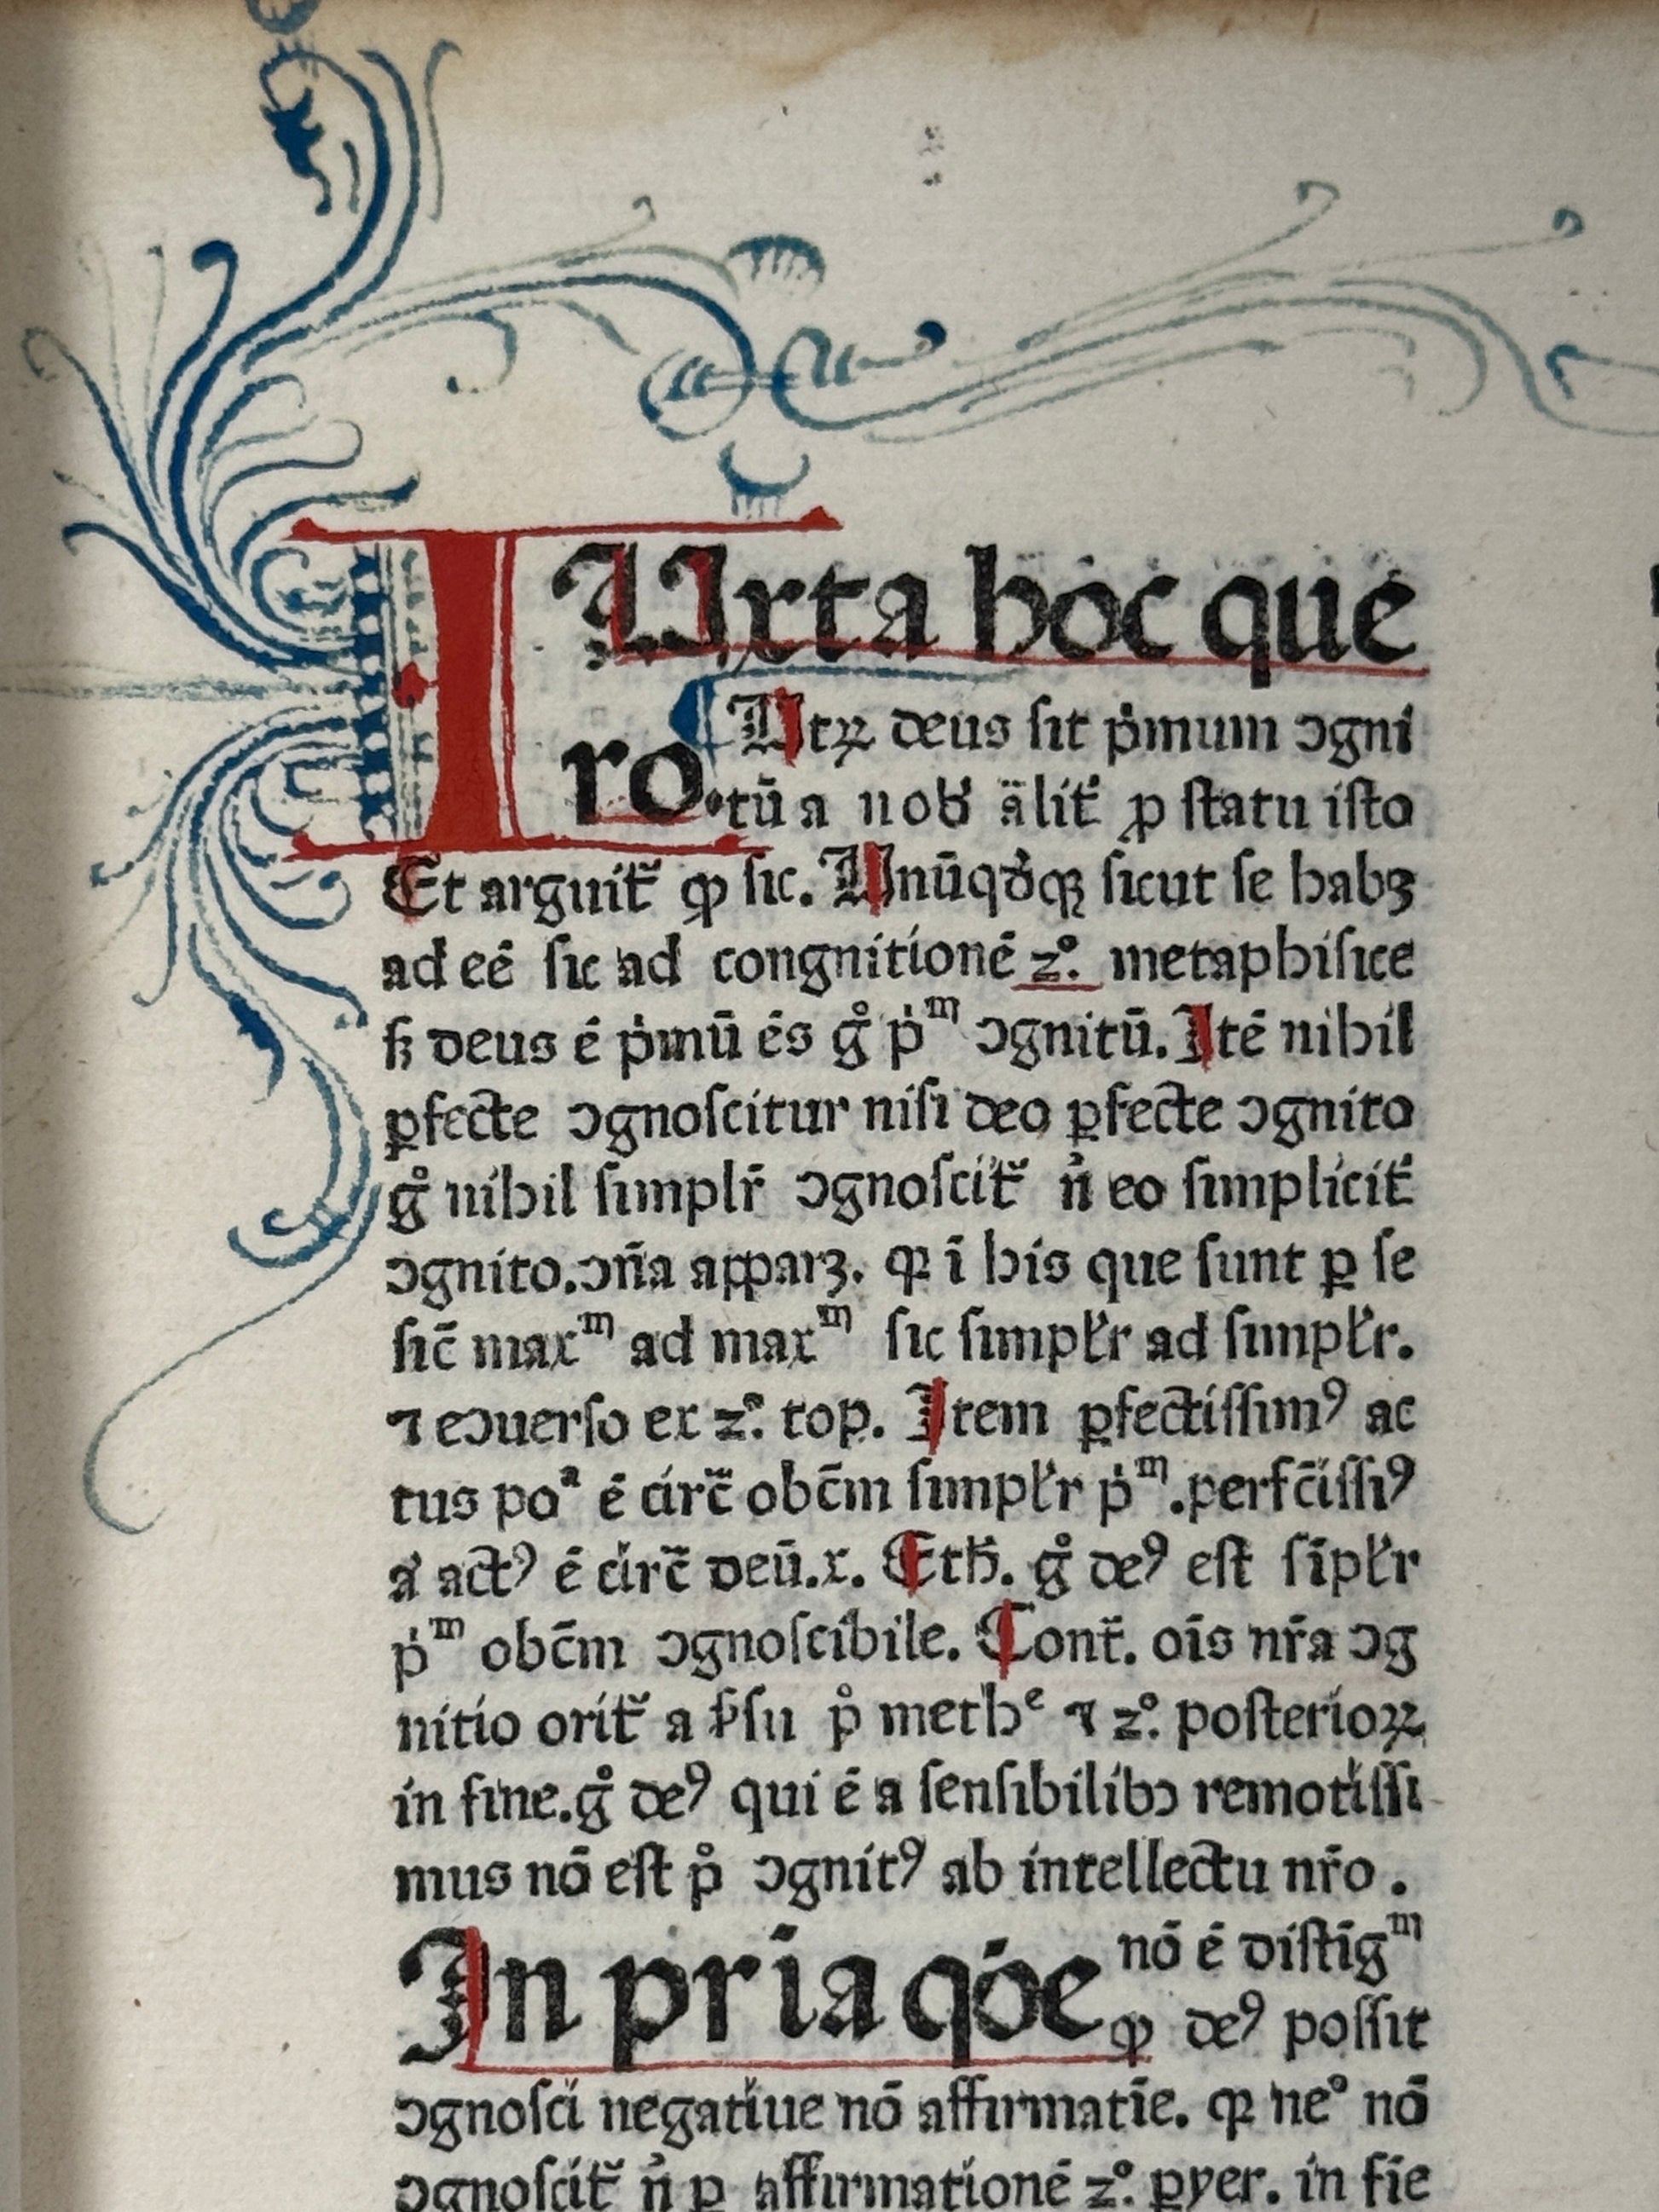 IUxta hoc que
ro. Utꝝ deus sit pͥmum ꝯgni
tū a nobꝭ äliť ꝓ statu isto
Et arguiť ꝙ sic. Unūqďqꝫ sicut se habꝫ
ad eē sic ad congnitionē 2°. metaphisice
sꝫ deus ē pͥmū ēs g̊ pͥᵐ ꝯgnitū. Itē nihil
ꝑfecte ꝯgnoscitur nisi deo ꝑfecte ꝯgnito
g̊ nihil simplr̄ ꝯgnosciť nͥ eo simpliciť
ꝯgnito. ꝯña apparꝫ. qꝛ ī his que sunt ꝑ se
sic̄ maxᵐ ad maxᵐ sic simpłr ad simpłr.
⁊ eꝯuerso ex 2°. top. Item ꝑfectissimꝰ ac
tus poᵃ ē circ̄ obc̄m simpłr pͥᵐ. perfc̄issiꝰ
aͥ actꝰ ē circ̄ deū. x. Eth̄. g̊ deꝰ est sīpłr
pͥᵐ obc̄m ꝯgnoscibile. Cont̄. oīs nr̄a ꝯg
nitio oriť a sēsu p̊ methᵉ ⁊ 2°. posterioꝝ
in fine. g̊ deꝰ qui ē a sensibilibꝫ remotissi
mus nō est p̊ ꝯgnitꝰ ab intellectu nr̄o.
In pria qōe nō ē distīgᵐ
ꝙ deꝰ possit
ꝯgnosci negatiue nō affirmatīe. qꝛ ne° nō
ꝯgnosciť nͥ ꝑ affirmationē 2°. ꝑyer. in fie